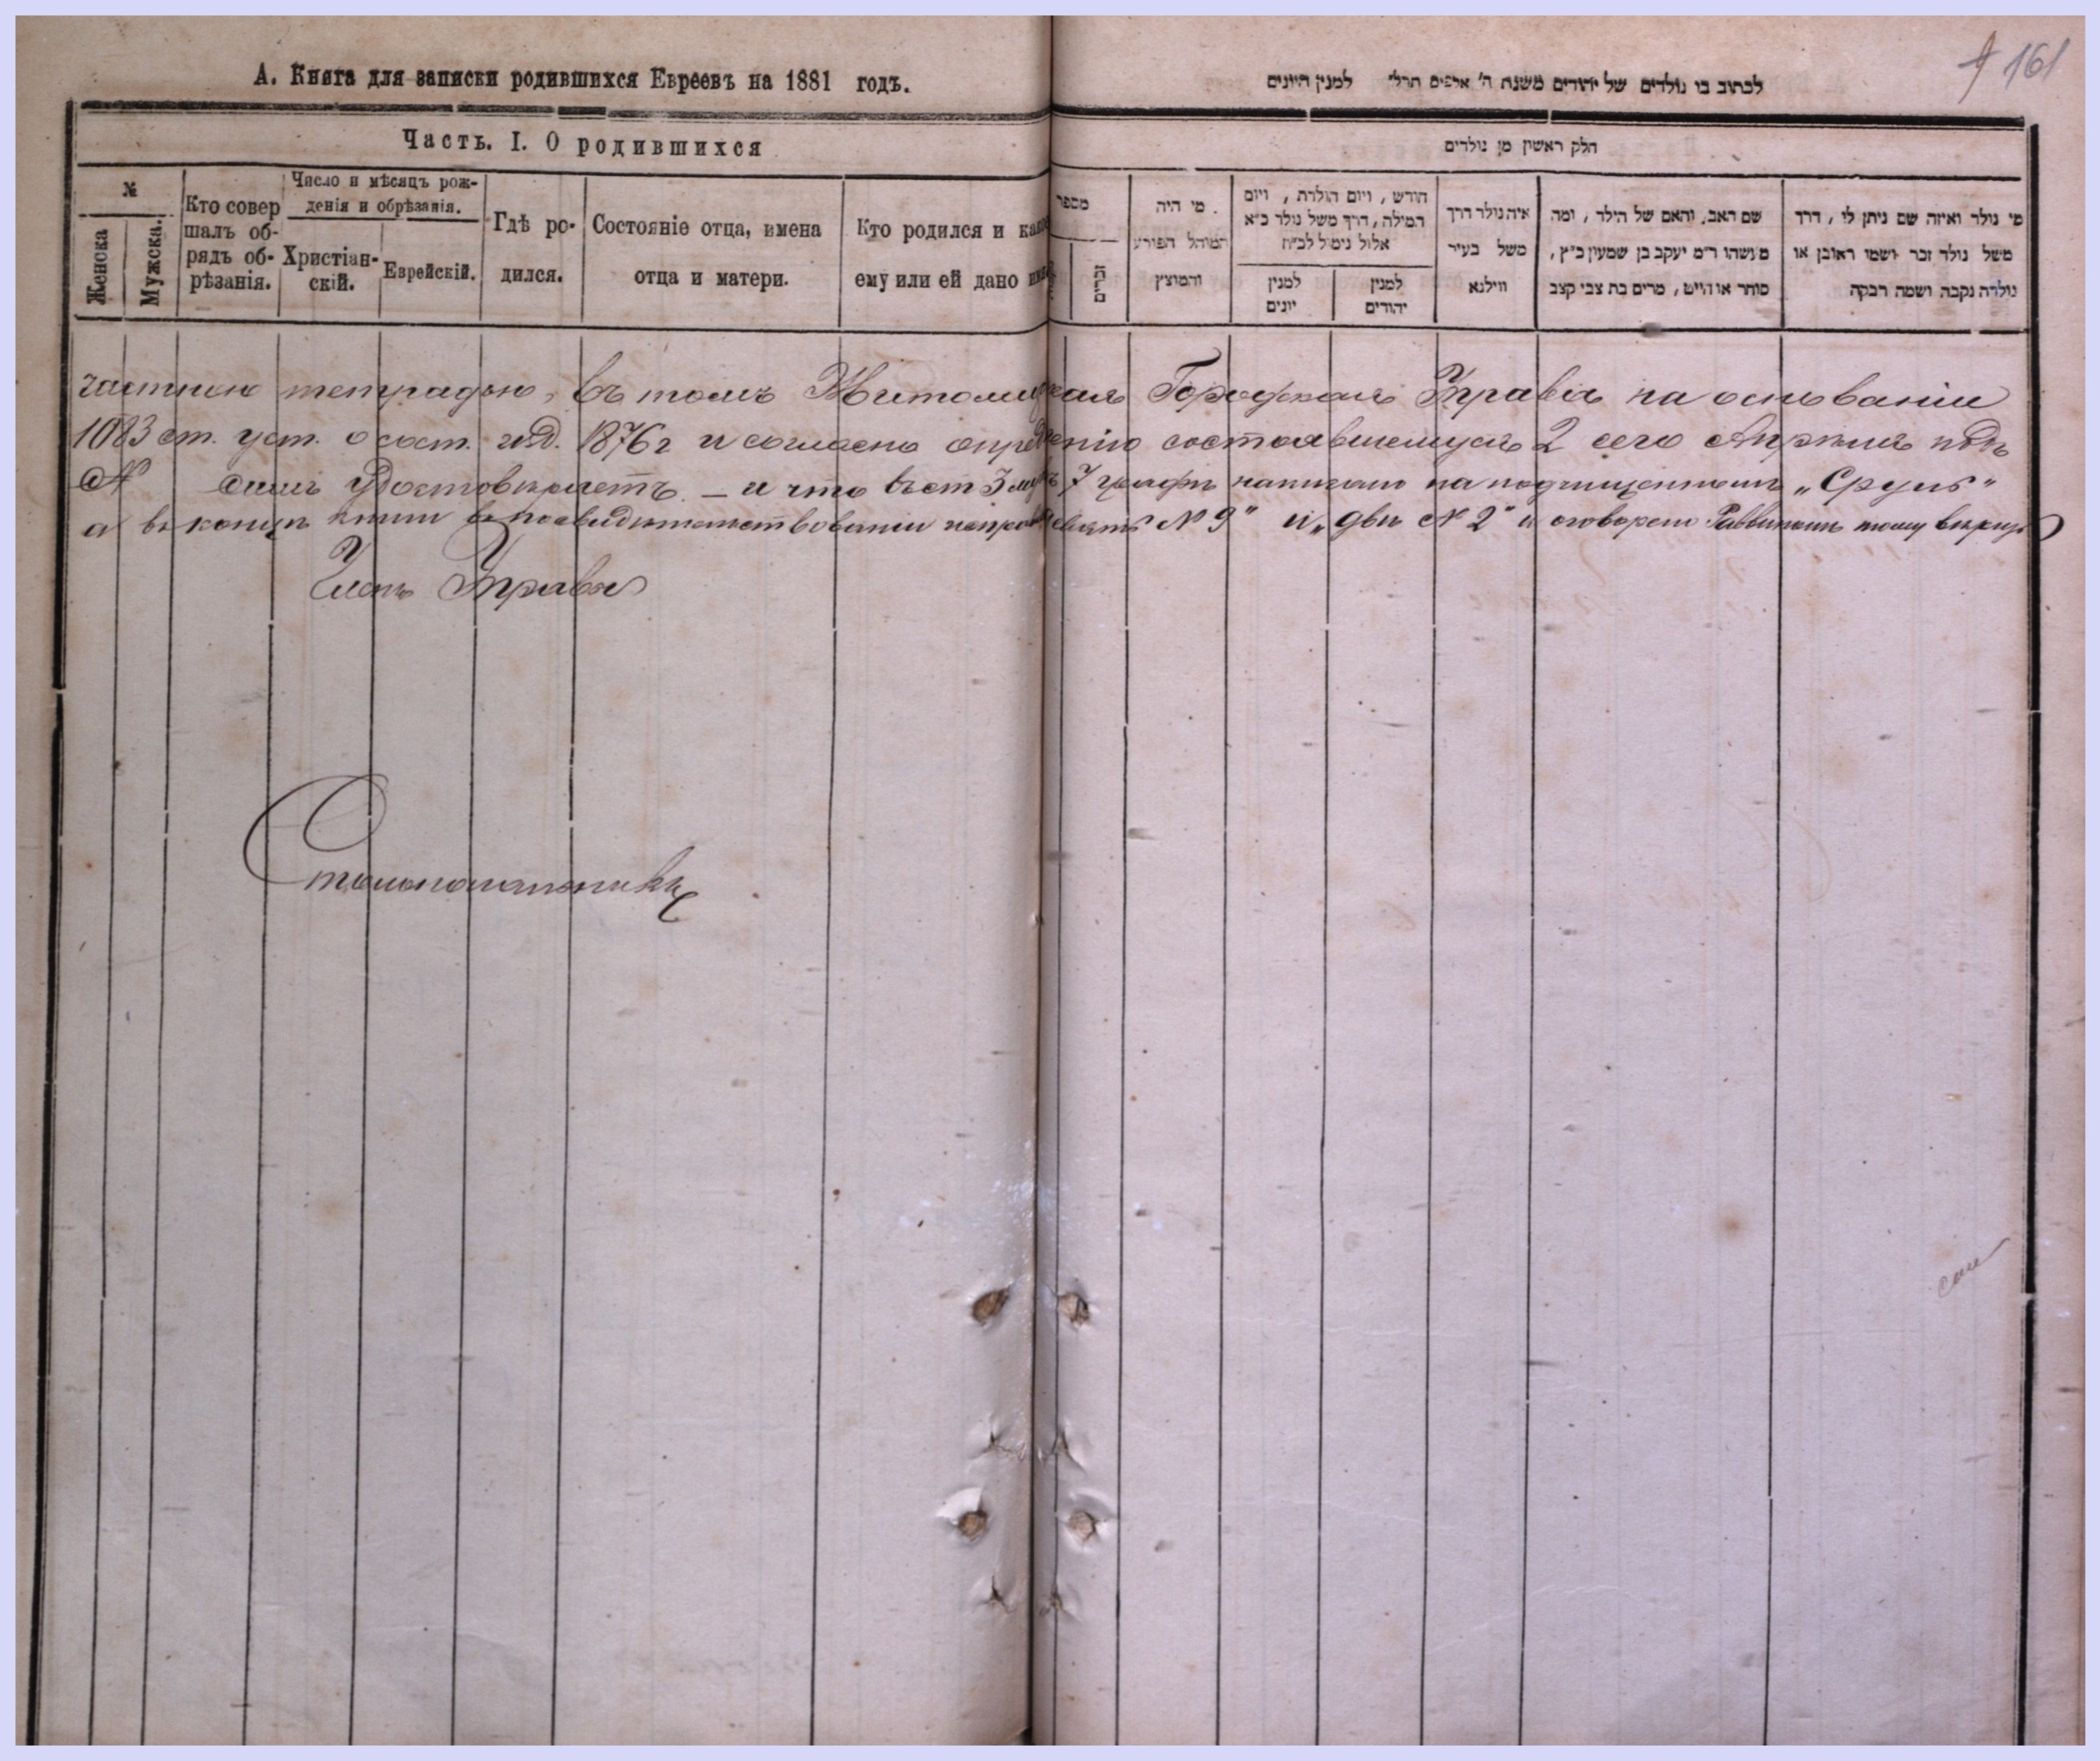 А. Книга для записки родившихся Евреевъ на 1881 годъ.
Часть. I. О родившихся
№
Женска
Мужска.
Кто совер
шалъ об-
рядъ об-
рѣзанія.
Число и мѣсяцъ рож-
денія и обрѣзанія.
Христіан-
скій.
Еврейскій.
Гдѣ ро-
дился.
Состояніе отца, имена
отца и матери.
Кто родился и как
ему или ей дано им
161
לכתוב בו נולדים של יהודים משנת ה' אלפים תרל" למנין היונים
חלק ראשון מן נולדים
מספר
זכרים
מי היה
המוהל הפורע
והמוצץ
חודש, ויום הולדת, ויום
המילה, דרך משל נולד כ"א
אלול נימול לכ"ח
למנין
יונים
למנין
יהודים
איה נולד דרך
משל בעיר
ווילנא
שם האב, והאם של הילד, ומה
מעשהו ר"מ יעקב בן שמעון כ"ץ,
סוחר או חייט, מרים בת צבי קצב
מי נולד ואיזה שם ניתן לו, דרך
משל נולד זכר ושמו ראובן או
נולדה נקבה ושמה רבקה
тетрадью, въ томъ Житомирская Городская Управа на основаніи
1083 ст. уст. о сост. изд. 1876 г и согласно опредѣленію состоявшемуся 2 сего Апрѣля подъ
№ симъ удостовѣряетъ – и что въ ст 3 муж 7 графѣ написано на подчищенномъ „Сруль"
а въ концѣ книги въ засвидѣтельствованіи № 9" и „двѣ № 2" и оговорено Раввиномъ тому вѣрить
Членъ Управы
Столоначальникъ